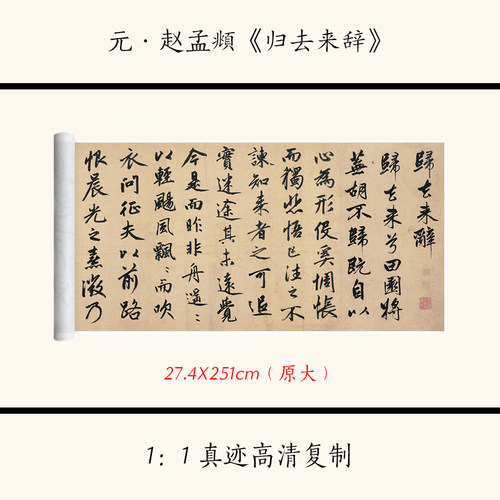 元·赵孟頫《归去来辞》
歸去来辭
歸去来兮田園将
蕪胡不歸既自以
心為形役奚惆悵
而獨悲悟已往之不
諫知来者之可追
實迷途其未遠覺
今是而昨非舟遥〻
以輕颺風飄〻而吹
衣問征夫以前路
恨晨光之熹微乃
27.4X251cm（原大）
1：1真迹高清复制